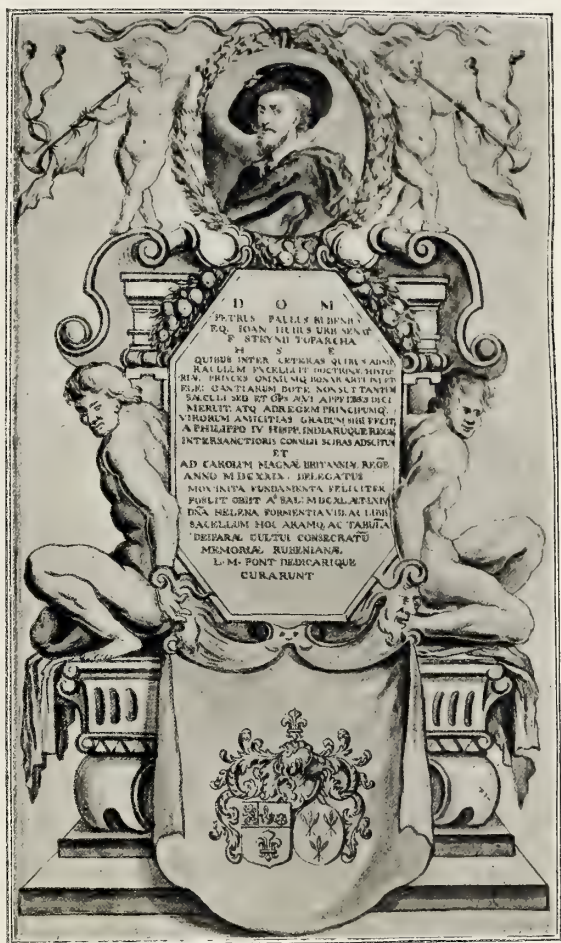 D O M
PETRUS PAULUS RUBENIUS
EQ. IOAN HUIUS URB SENAT
F STEYNII TOPARCHA
H S E
QUIBUS INTER CETERAS QUIBUS ADMI
RACULUM EXCELLUIT DOCTRINÆ HISTO
RIÆ PRISCÆ OMNIUMQ BONAR ARTIUM ET
ELEGANTIARUM DOTE NON SUI TANTUM
SÆCULI SED ET OPS ÆVI APPELLES DICI
MERUIT. ATQ AD REGEM PRINCIPUMQ.
VIRORUM AMICITIAS GRADUM SIBI FECIT
A PHILIPPO IV HISPP. INDIARUQUE REGE
INTER SANCTIORIS CONSILII SCRIBAS ADSCITUS
ET
AD CAROLUM MAGNÆ BRITANNIÆ REGE
ANNO MDCXXIX. DELEGATUS
FUNDAMENTA FELICITER
POSUIT OBIIT Aº SAL: MDCXL ÆT LXIV
DÑA HELENA FORMENTIA VID. AC LIBE
SACELLUM HOC ARAMQ. AC TABULA
DEIPARÆ CULTUI CONSECRATU
MEMORIÆ RUBENIANÆ
L. M. PONI DEDICARIQUE
CURARUNT